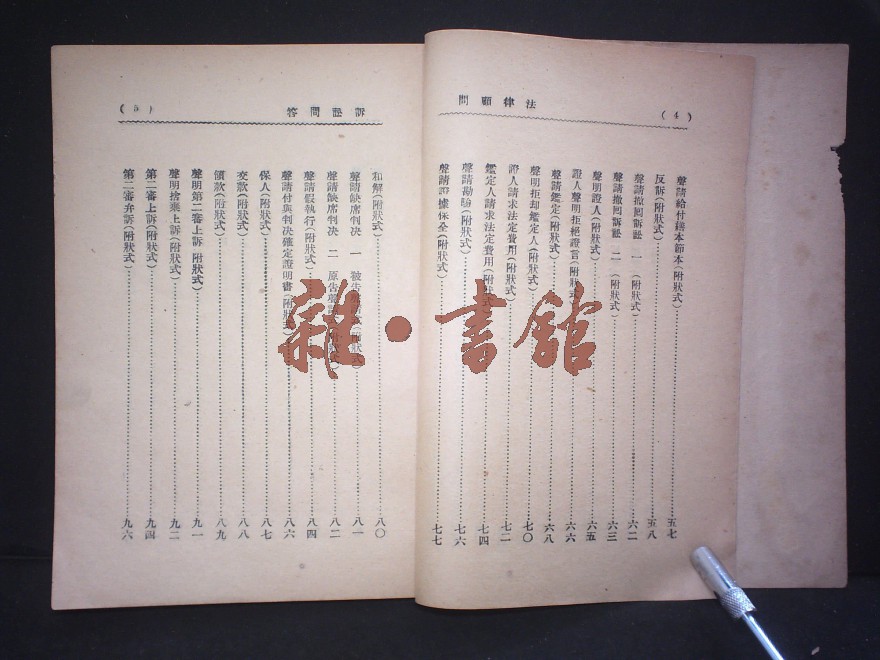 法律顧問 (4)
聲請給付繕本節本(附狀式)……五七
反訴(附狀式)……五八
聲請撤囘訴訟 一 (附狀式)……六二
聲請撤囘訴訟 二 (附狀式)……六三
聲明證人(附狀式)……六五
證人聲明拒絕證言(附狀式)……六六
聲請鑑定(附狀式)……六八
聲明拒却鑑定人(附狀式)……七〇
證人請求法定費用(附狀式)……七二
鑑定人請求法定費用(附狀式)……七四
聲請勘驗(附狀式)……七六
聲請證據保全(附狀式)……七七
訴訟問答
和解(附狀式)……八〇
聲請缺席判决 一 被告……八一
聲請缺席判决 二 原告……八二
聲請假執行(附狀式)……八四
聲請付與判决確定證明書(附狀式)……八六
保人(附狀式)……八七
交款(附狀式)……八八
領款(附狀式)……八九
聲明第二審上訴(附狀式)……九一
聲明捨棄上訴(附狀式)……九二
第二審上訴(附狀式)……九四
第二審弁訴(附狀式)……九六
雜·書館